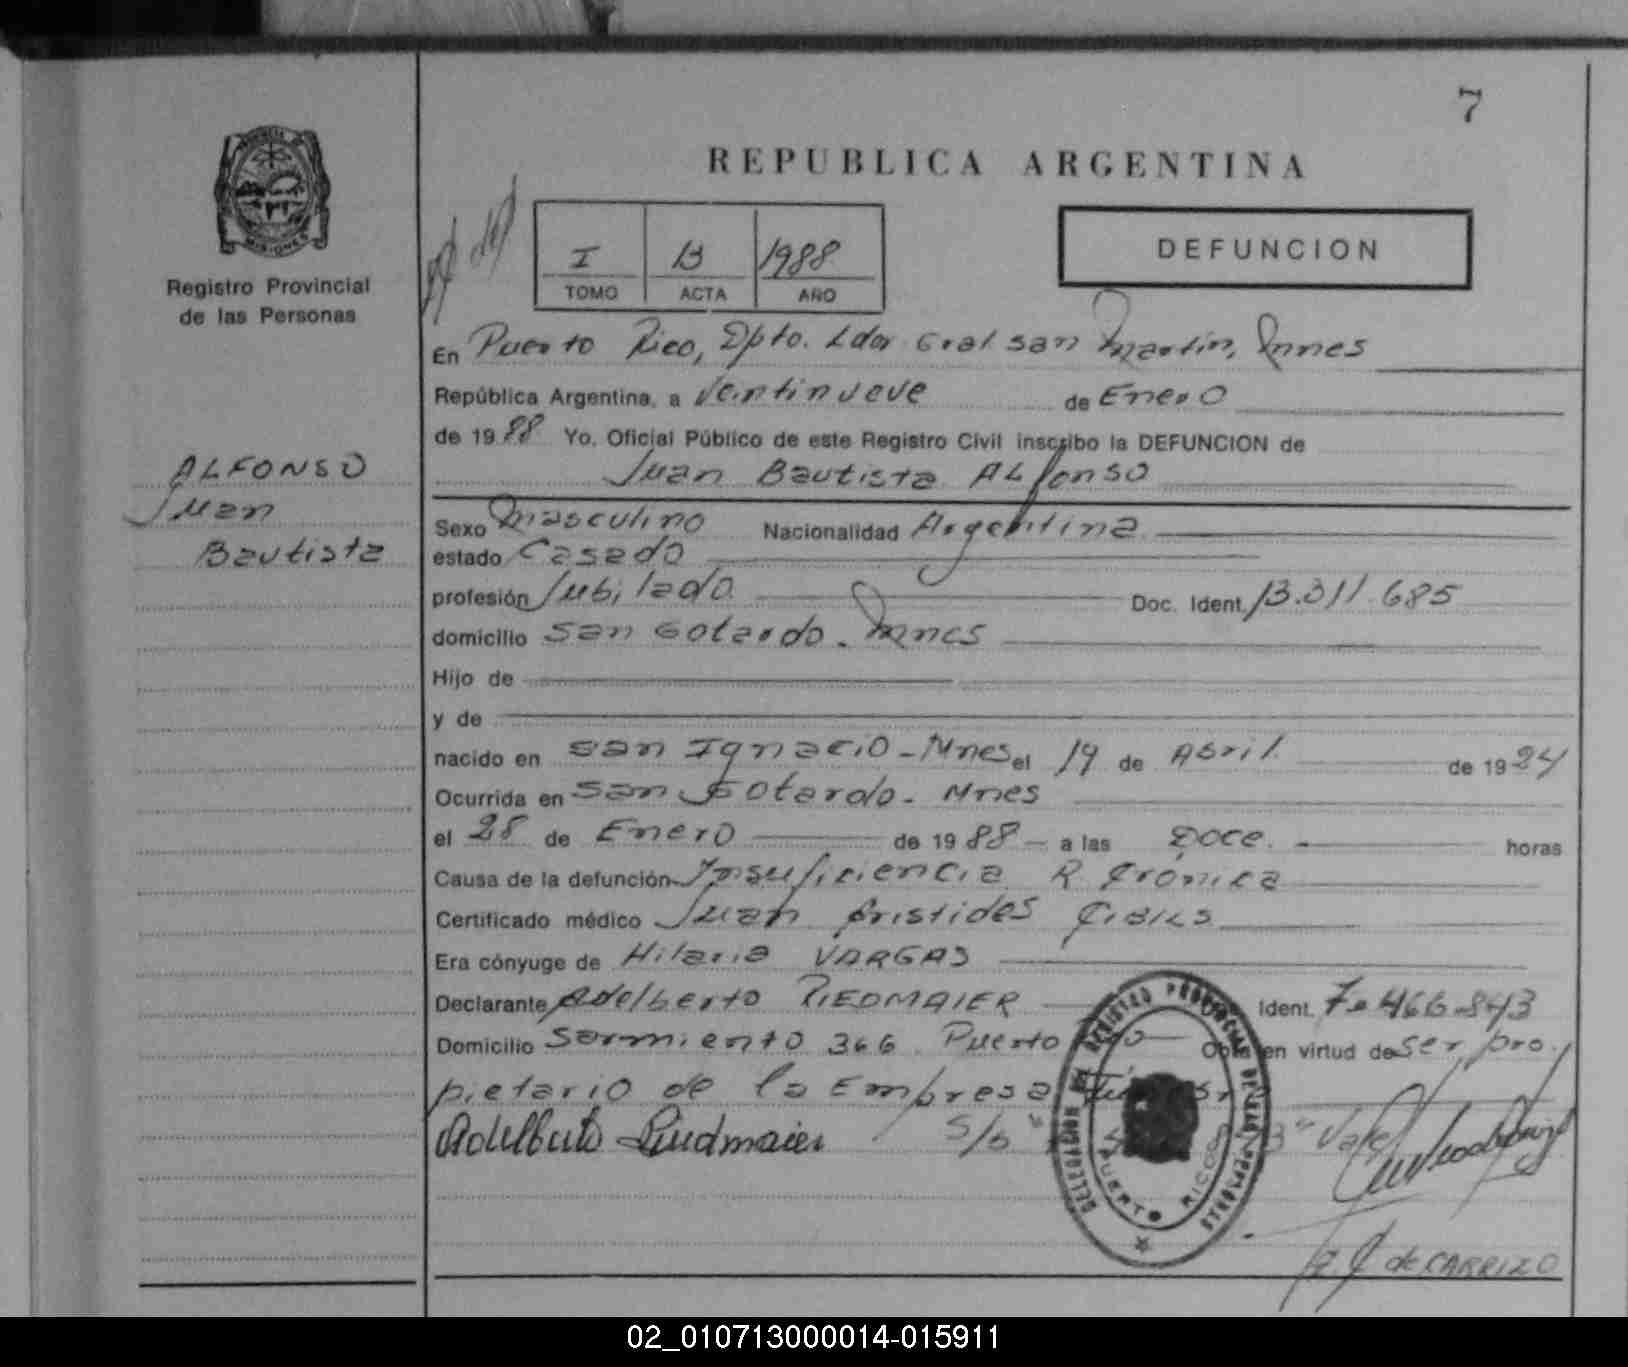 7
REPUBLICA ARGENTINA
PROVINCIA DE
MISIONES
Registro Provincial
de las Personas
I 13 1988
TOMO ACTA AÑO
DEFUNCION
ALFONSO
Juan
Bautista
En Puerto Rico, Dpto. Ldor Gral San Martín, Mnes
República Argentina, a Veintinueve de Enero
de 1988 Yo, Oficial Público de este Registro Civil inscribo la DEFUNCION de
Juan Bautista ALfonso
Sexo Masculino Nacionalidad Argentina
estado Casado
profesión Jubilado Doc. Ident. 13.011.685
domicilio San Gotardo. Mnes
Hijo de
y de
nacido en San Ignacio - Mnes el 19 de Abril de 1924
Ocurrida en San Gotardo - Mnes
el 28 de Enero de 1988 a las Doce horas
Causa de la defunción Insuficiencia R Crónica
Certificado médico Juan Aristides
Era cónyuge de Hilaria VARGAS
Declarante Adelberto RIEDMAIER Ident. 7.466.843
Domicilio Sarmiento 366 Puerto Obra en virtud de ser pro.
pietario de la Empresa
Adelberto Riedmaier S/b "13" Vale
DELEGACION DEL REGISTRO PROVINCIAL DE LAS PERSONAS
PUERTO RICO
de CARRIZO
02_010713000014-015911